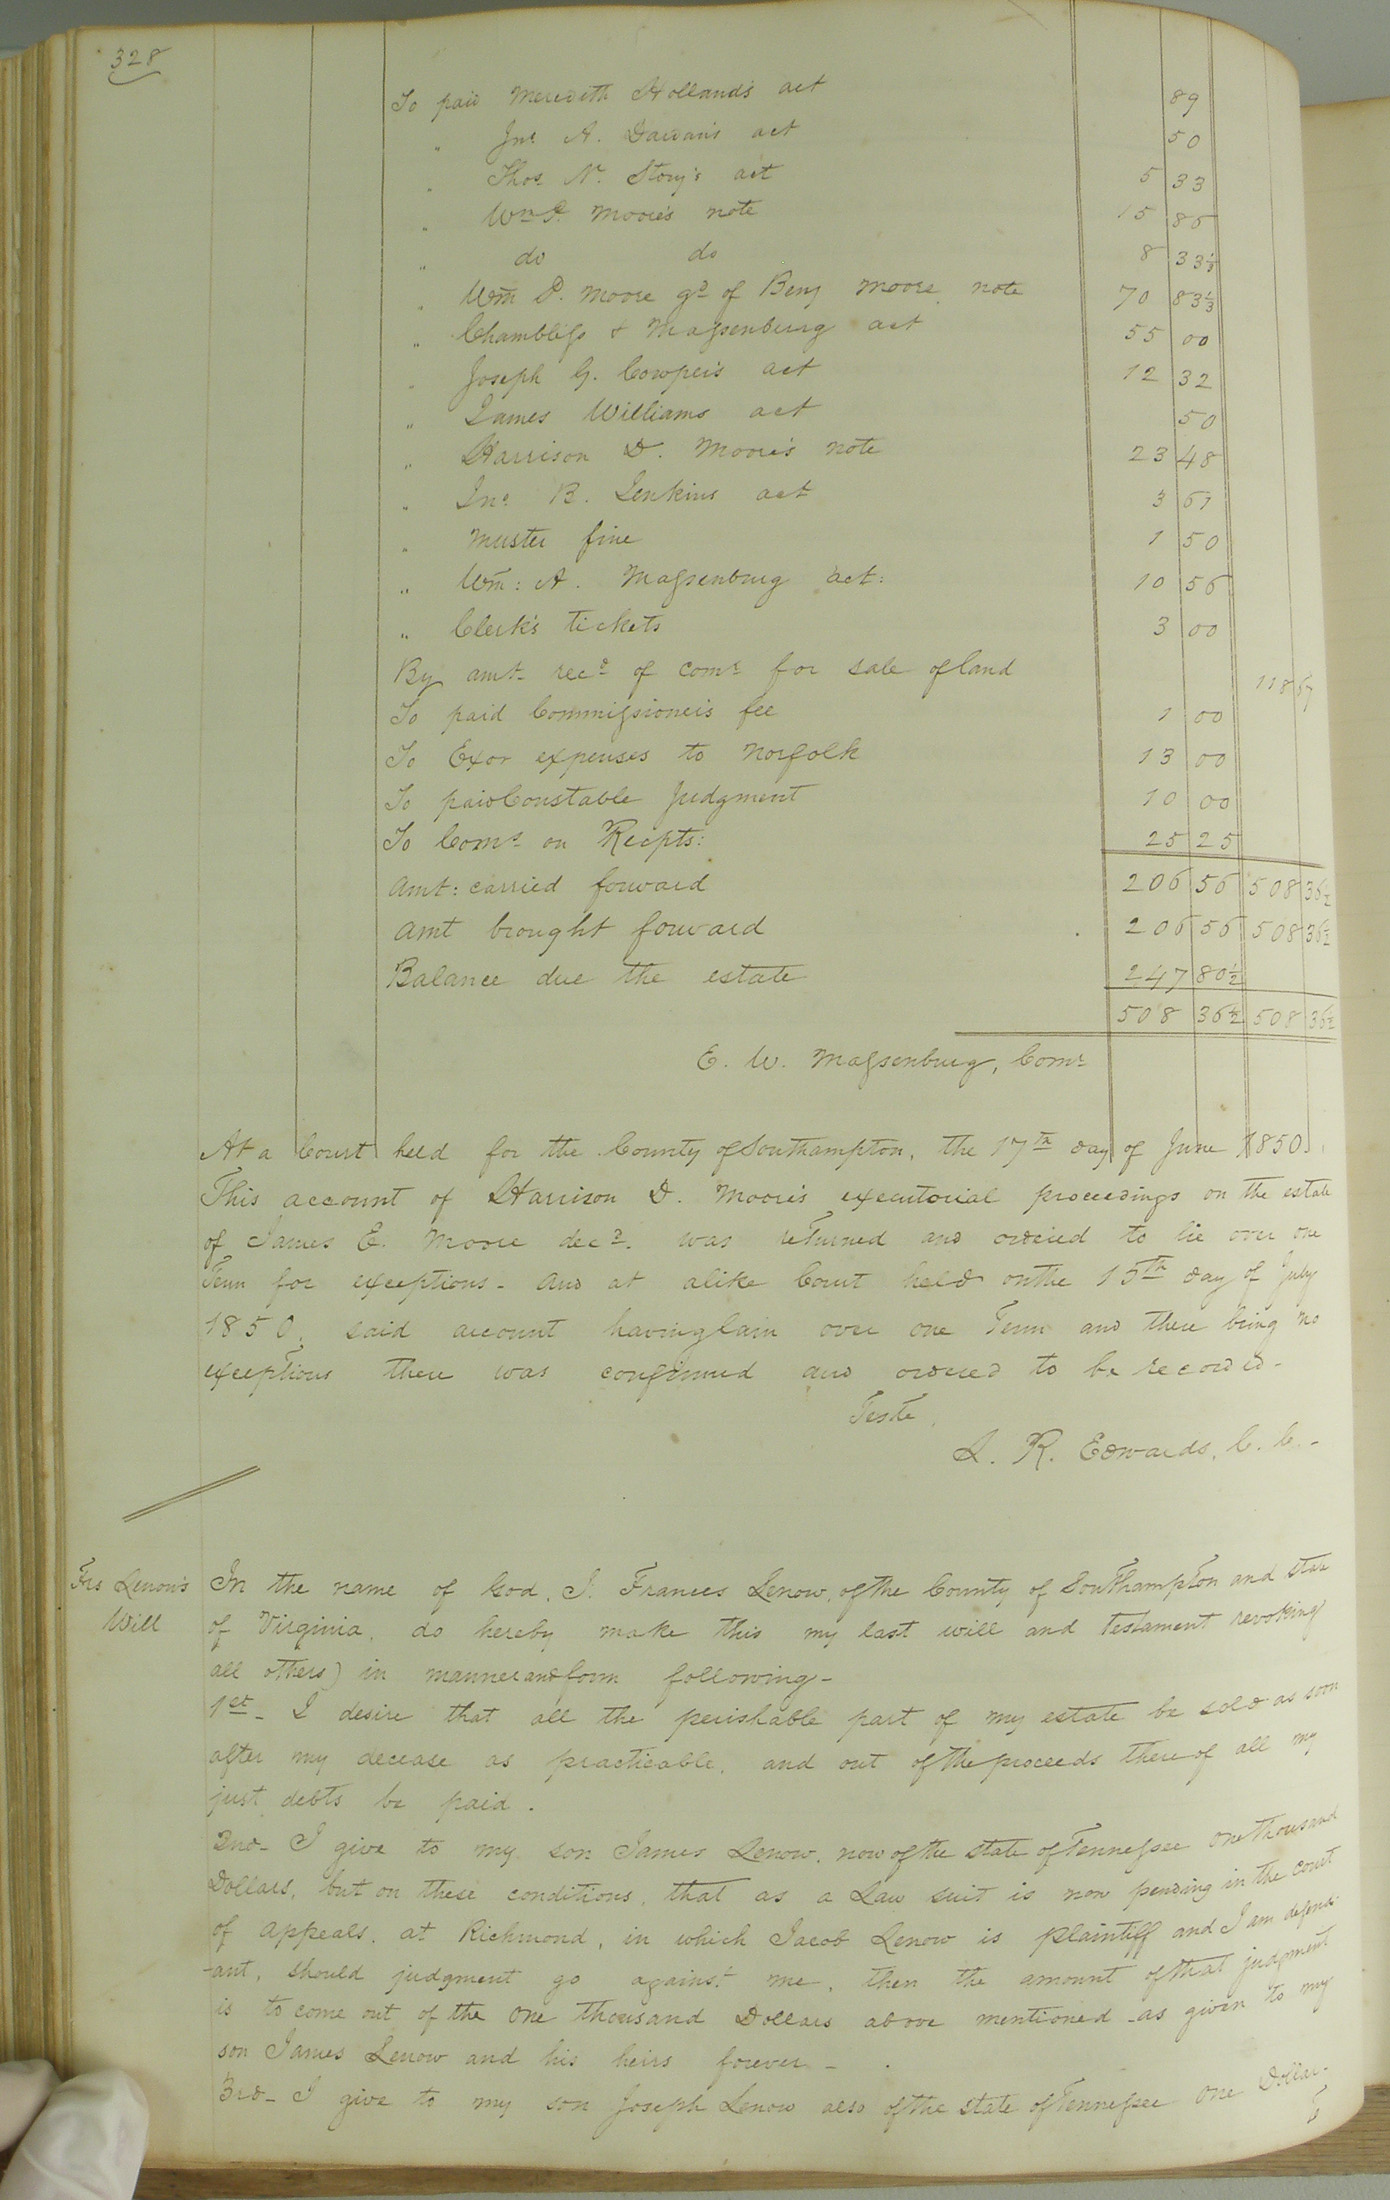 328
To paid Meredith Holland's act 89
" Jno A. Dawan's act 50
" Thos N. Story's act 5 33
" Wm P. Moore's note 15 86
" do do 8 33⅓
" Wm D. Moore gd of Benj Moore note 70 83⅓
" Chambliss & Massenburg act 55 00
" Joseph G. Cowper's act 12 32
" James Williams act 50
" Harrison D. Moore's note 23 48
" Jno B. Jenkins act 3 61
" Muster fine 1 50
" Wm: A. Massenburg act: 10 56
" Clerk's tickets 3 00
By amt recd of comr for sale of land 118 67
To paid Commissioneis fee 1 00
To Exor expenses to Norfolk 13 00
To paid Constable Judgment 10 00
To Coms on Recipts: 25 25
Amt: carried forward 206 56 508 36½
Amt brought forward 206 56 508 36½
Balance due the estate 247 80½
508 36½ 508 36½
E. W. Massenburg, Comr
At a Court held for the County of Southampton, the 17th day of June 1850.
This account of Harrison D. Moore's executorial proceedings on the estate
of James E. Moore decd. was returned and ordered to lie over one
Term for exceptions - And at alike Court held on the 15th day of July
1850, said account having lain over one Term and there being no
exceptions there was confirmed and ordered to be recorded -
Teste,
L. R. Edwards, C. C. -
Frs Lenow's
Will
In the name of God, I, Frances Lenow, of the County of Southampton and State
of Virginia, do hereby make this my last will and testament revoking
all others) in manner and form following -
1st - I desire that all the perishable part of my estate be sold as soon
after my decease as practicable, and out of the proceeds there of all my
just debts be paid.
2nd - I give to my son James Lenow, now of the State of Tennessee One thousand
Dollars, but on these conditions, that as a Law suit is now pending in the court
of appeals, at Richmond, in which Jacob Lenow is plaintiff and I am defend-
-ant, should judgment go against me, then the amount of that judgment
is to come out of the One thousand Dollars above mentioned as given to my
son James Lenow and his heirs forever -
3rd - I give to my son Joseph Lenow also of the State of Tennessee One Dollar -